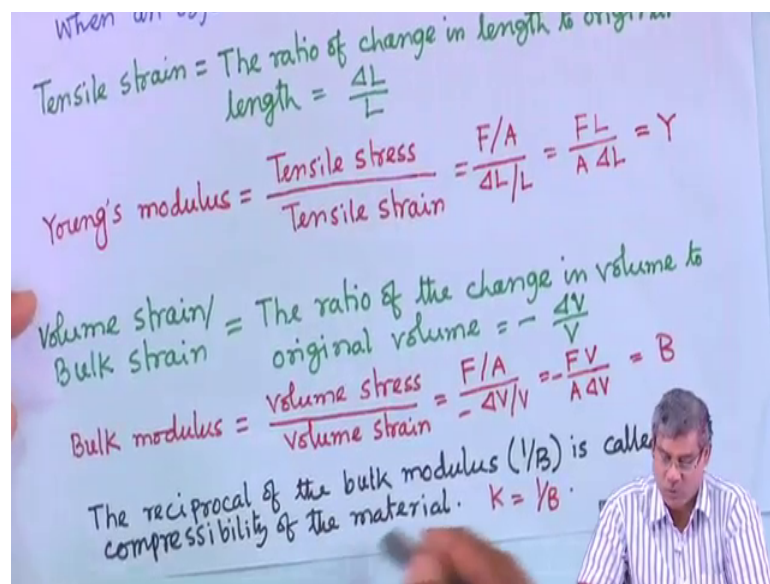 When an
Tensile strain = The ratio of change in length to original
length = ΔL/L
Young's modulus = Tensile stress/Tensile strain = F/A/ΔL/L = FL/A ΔL = Y
Volume strain/ = The ratio of the change in volume to
Bulk strain original volume = - ΔV/V
Bulk modulus = volume stress/volume strain = F/A/- ΔV/V = - FV/A ΔV = B
The reciprocal of the bulk modulus (1/B) is calle
compressibility of the material. K = 1/B.